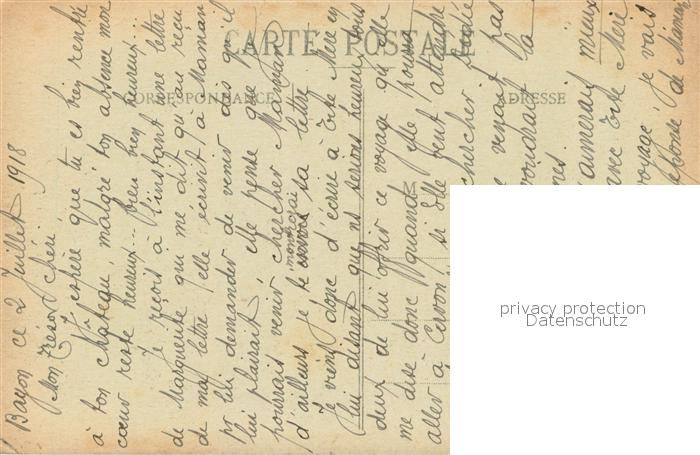 CARTE POSTALE
CORRESPONDANCE
ADRESSE
Bayon ce 2 Juillet 1918
Mon Trésor chéri
J'espère que tu es bien rentré
à ton château, malgré ton absence mon
cœur reste heureux... bien bien heureux...
Je reçois à l'instant une lettre
de Marguerite qui me dit qu'au reçu
de ma lettre elle écrivit à Maman
pr lui demander de venir dès qu'il
lui plairait, elle pense que je
pourrais venir chercher Maman
d'ailleurs je te montrerai sa lettre
Je viens donc d'écrire à Tite Mère en
lui disant que ns serions heureux tous
deux de lui offrir ce voyage qu'elle
me dise donc quand elle pourra
aller à si elle peut attendre
chercher
venait pas
voudrait la
aimerais mieux
avec Tite Mère
voyage, je vais
réponse de Maman
privacy protection
Datenschutz